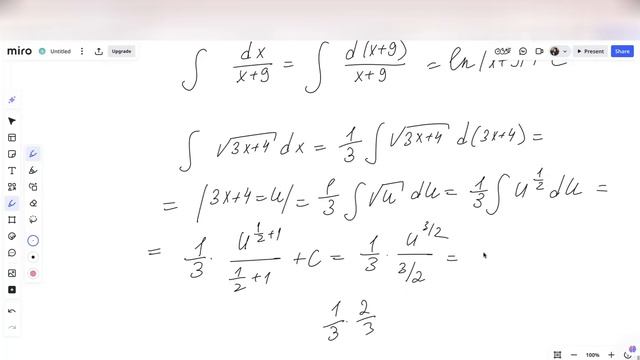 miro Untitled Upgrade Present Share
∫ dx/(x+9) = ∫ d(x+9)/(x+9) = ln|x+9|+C
∫ √(3x+4) dx = 1/3 ∫ √(3x+4) d(3x+4) =
= |3x+4=u| = 1/3 ∫ √u du = 1/3 ∫ u^(1/2) du =
= 1/3 · u^(1/2+1)/(1/2+1) + C = 1/3 · u^(3/2)/(3/2) =
1/3 · 2/3
100%